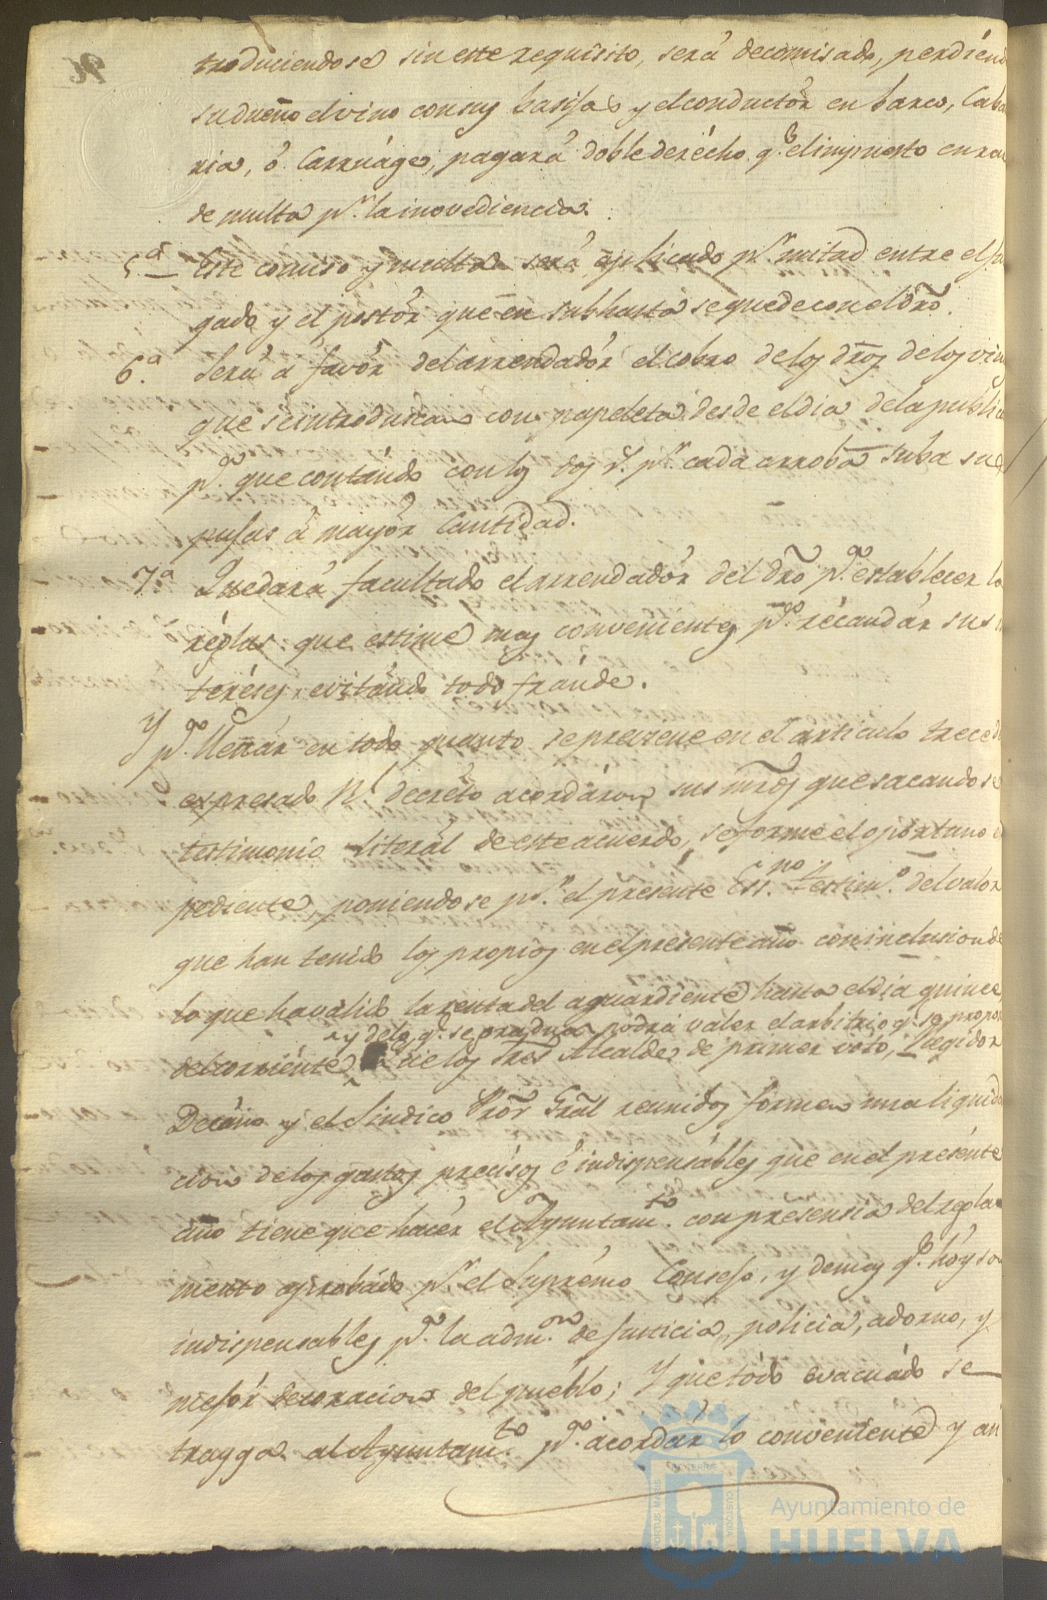 troduciendose sin este requisito, será decomisado, perdiend
su dueño el vino con sus basijas y el conductór en barco, Caba
ria, ó Carruage, pagará doble derécho q.e el impuesto en ra
de multa p.r la inovediencia.
5.a Este comiso y multa será aplicado p.r mitad entre el Ju
gado y el postór que en subhasta se quede con el dro.
6.a Será á favór del arrendadór el cobro de los dros de los vin
que se introduscan con papeleta desde el dia de la public
p.a que contando con los dos r.s p.r cada arroba suba su
pujas á mayór Cantidad.
7.a Quedará facultado el arrendadór del dro p.a establecer la
réglas que estime mas convenientes p.a récaudár sus in
teréses evitando todo fráude.
Y p.a llenár en todo quanto se previene en el articulo trece d
expresado R.l decréto acordáron sus mrds que sacandose
testimonio literál de este acuerdo, se forme el oportuno e
pediente, poniendose p.r el presente Ess.no testim.o del valor
que han tenido los propios en el presente año con inclusion de
lo que ha válido la renta del aguardiente hasta el dia quince
y de lo q.e se pradua podrá valer el arbitrio q.e se propon
del corriénte que los Sres Alcaldes de primer voto, Regidor
Decáno y el Sindico Prór Grál reunidos formen una liquida
cion de los gastos precisos é indispensábles que en el presénte
año tiene que hacér el Ayuntam.to con presensia del regla
mento aprobádo p.r el Suprémo Consejo, y demas q.e hóy son
indispensables p.a la adm.on de Justicia, policia, adorno, y
mejór decoracion del puéblo; Y que tódo evacuádo se
trayga al Ayuntam.to p.a acordár lo conveniente y an
Ayuntamiento de
HUELVA